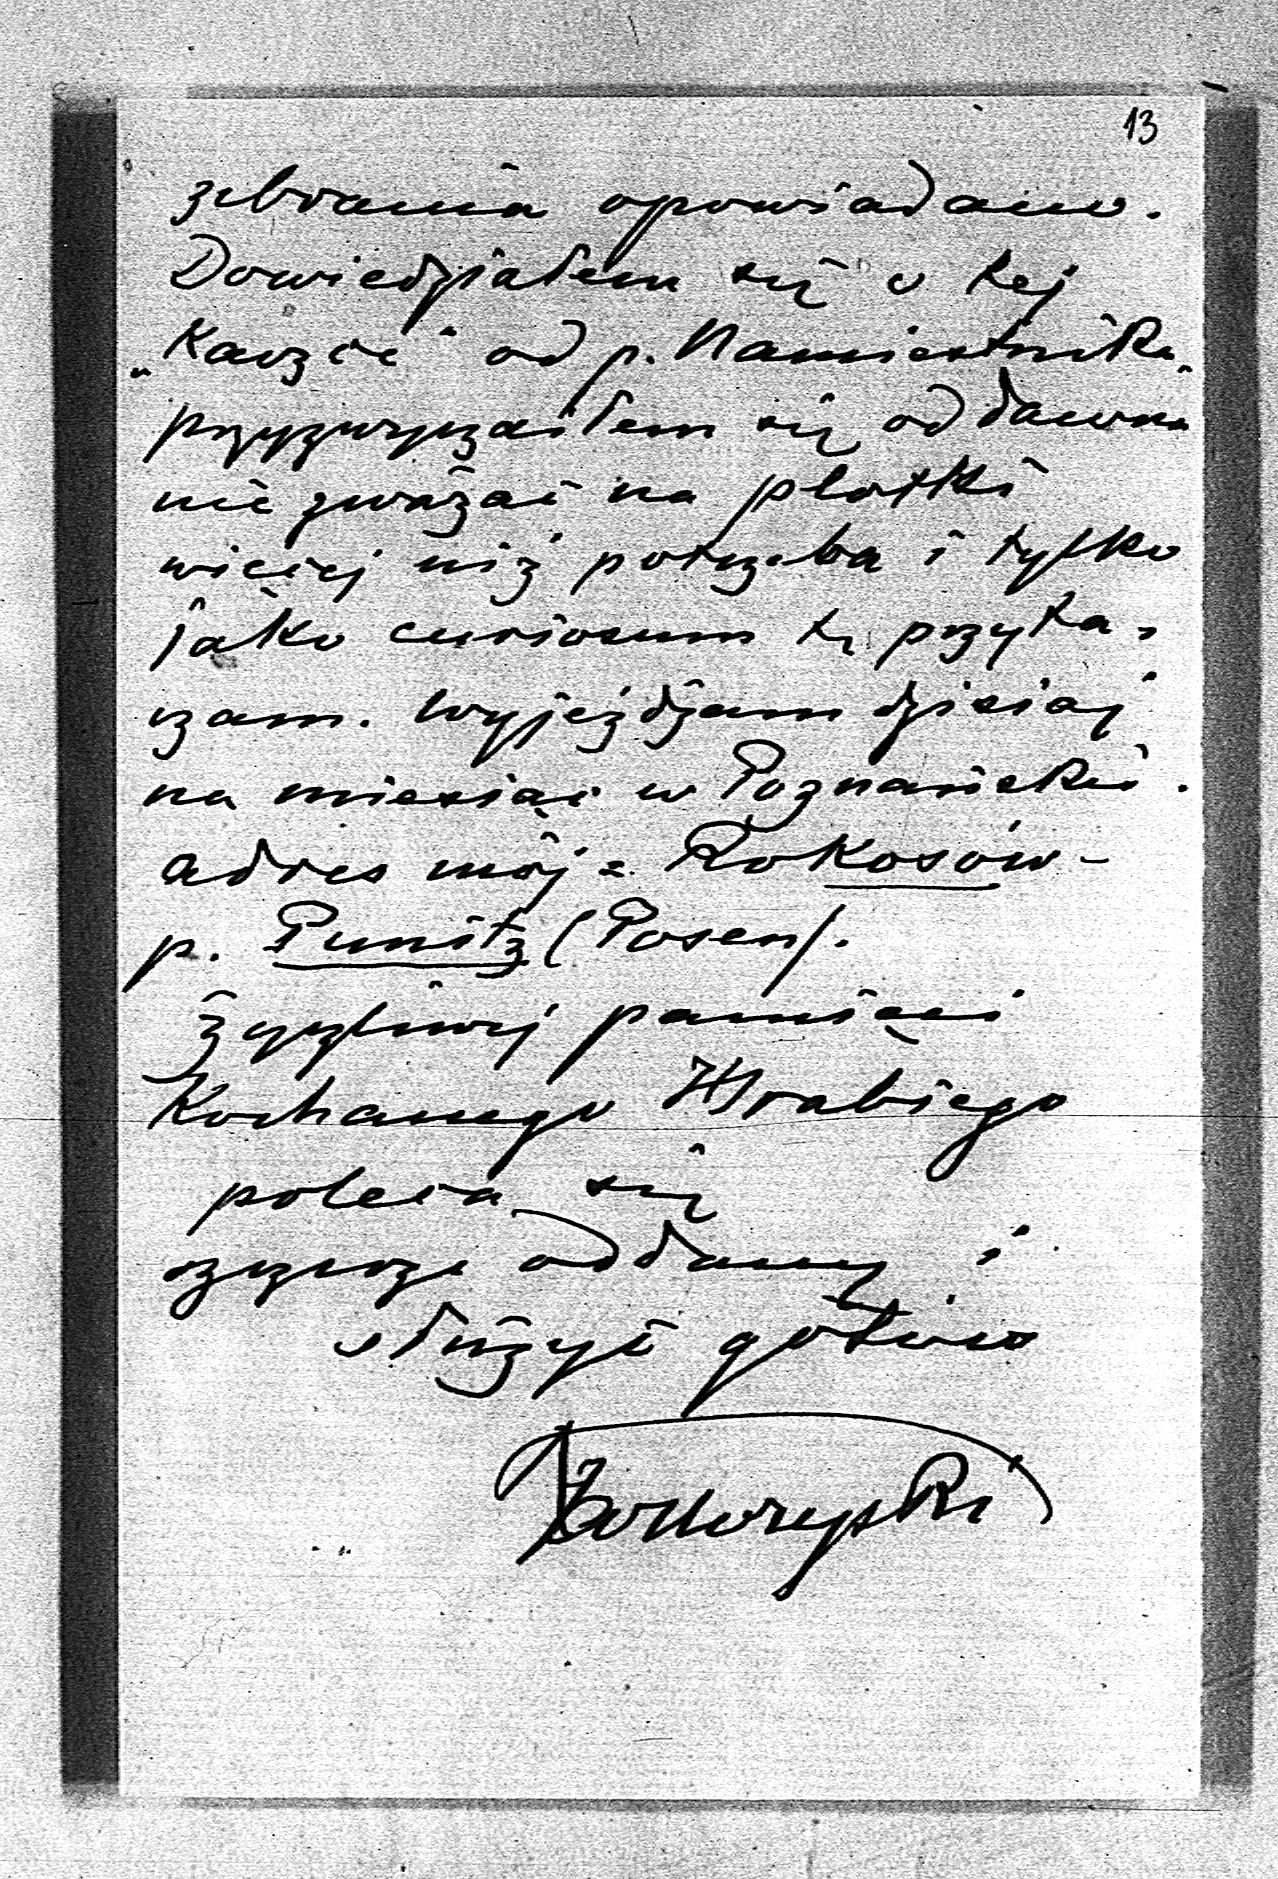 13
zebrania opowiadano.
Dowiedziałem się o tej
„Kaczce" od p. Namiestnika,
przyzwyczaiłem się od dawna
nie zważać na plotki
więcej niż potrzeba i tylko
jako curiosum tę przyta-
czam. Wyjeżdżam dzisiaj
na miesiąc w Poznańskie.
adres mój = Rokosów -
p. Punitz (Posen).
Życzliwej pamięci
Kochanego Hrabiego
poleca się
szczerze oddany i
służyć gotów